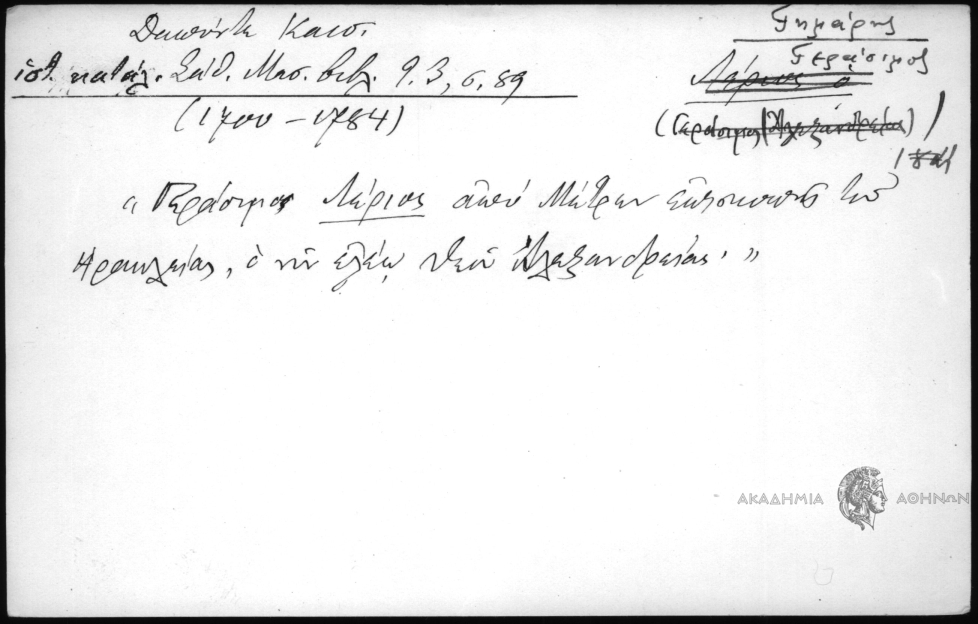 Δαπόντε Καισ.
ἱστ. κατάλ. Σάθ. Μεσ. βιβλ. τ. 3, σ. 89
(1700 – 1784)
Γημάρης
Γεράσιμος
Λέριος ὁ
(Γεράσιμος Ἀλεξανδρείας)
« Γεράσιμος Λέριος ἀπό Μέτρων ἐπισκοπῆς τοῦ
Ἡρακλείας, ὁ νῦν ἐλέῳ Θεοῦ Ἀλεξανδρείας. »
ΑΚΑΔΗΜΙΑ ΑΘΗΝΩΝ